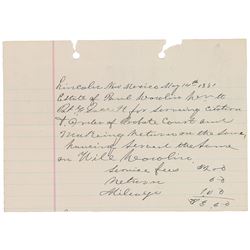 Lincoln New Mexico May 14th 1881
Estate of Paul Dowlin Dr to
Pat F. Garrett for serving Citation
& Order of Probate Court and
Making Return on the Same,
having served the same
on Will Dowlin
Service fees $2.00
Return 50
Mileage 1 00
$3 50